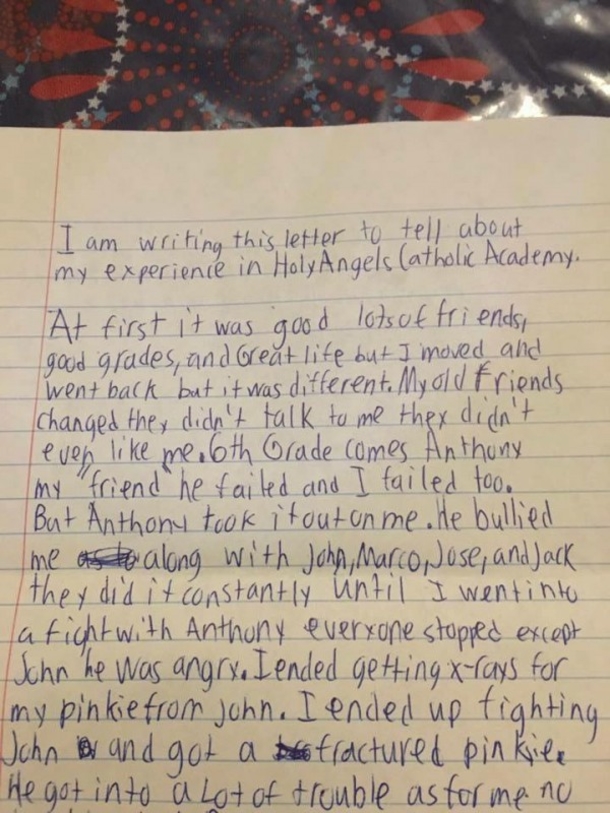 I am writing this letter to tell about
my experience in Holy Angels Catholic Academy.
At first it was good lots of friends,
good grades, and Great life but I moved and
went back but it was different. My old friends
changed they didn't talk to me they didn't
even like me. 6th Grade comes Anthony
my "friend" he failed and I failed too.
But Anthony took it out on me. He bullied
me along with John, Marco, Jose, and Jack
they did it constantly until I went into
a fight with Anthony everyone stopped except
John he was angry. I ended getting x-rays for
my pinkie from John. I ended up fighting
John and got a fractured pinkie.
He got into a Lot of trouble as for me no